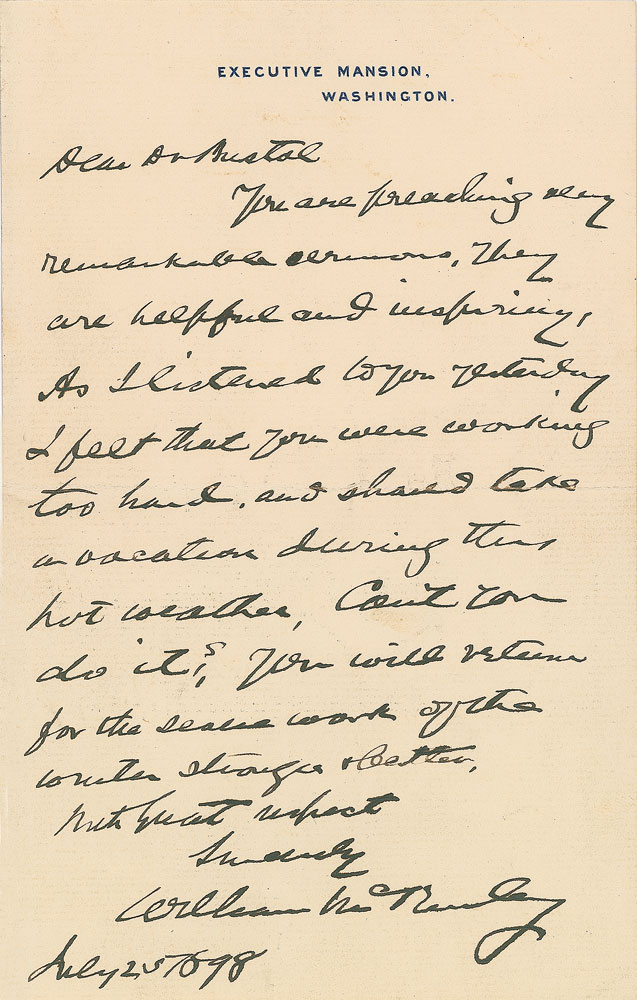 EXECUTIVE MANSION,
WASHINGTON.
Dear Dr Bristol
You are preaching very
remarkable sermons, They
are helpful and inspiring,
As I listened to you yesterday
I felt that you were working
too hard, and should take
a vacation during this
hot weather, Can't you
do it? You will return
for the work of the
winter stronger & better,
With great respect
Sincerely
William McKinley
July 25 1898